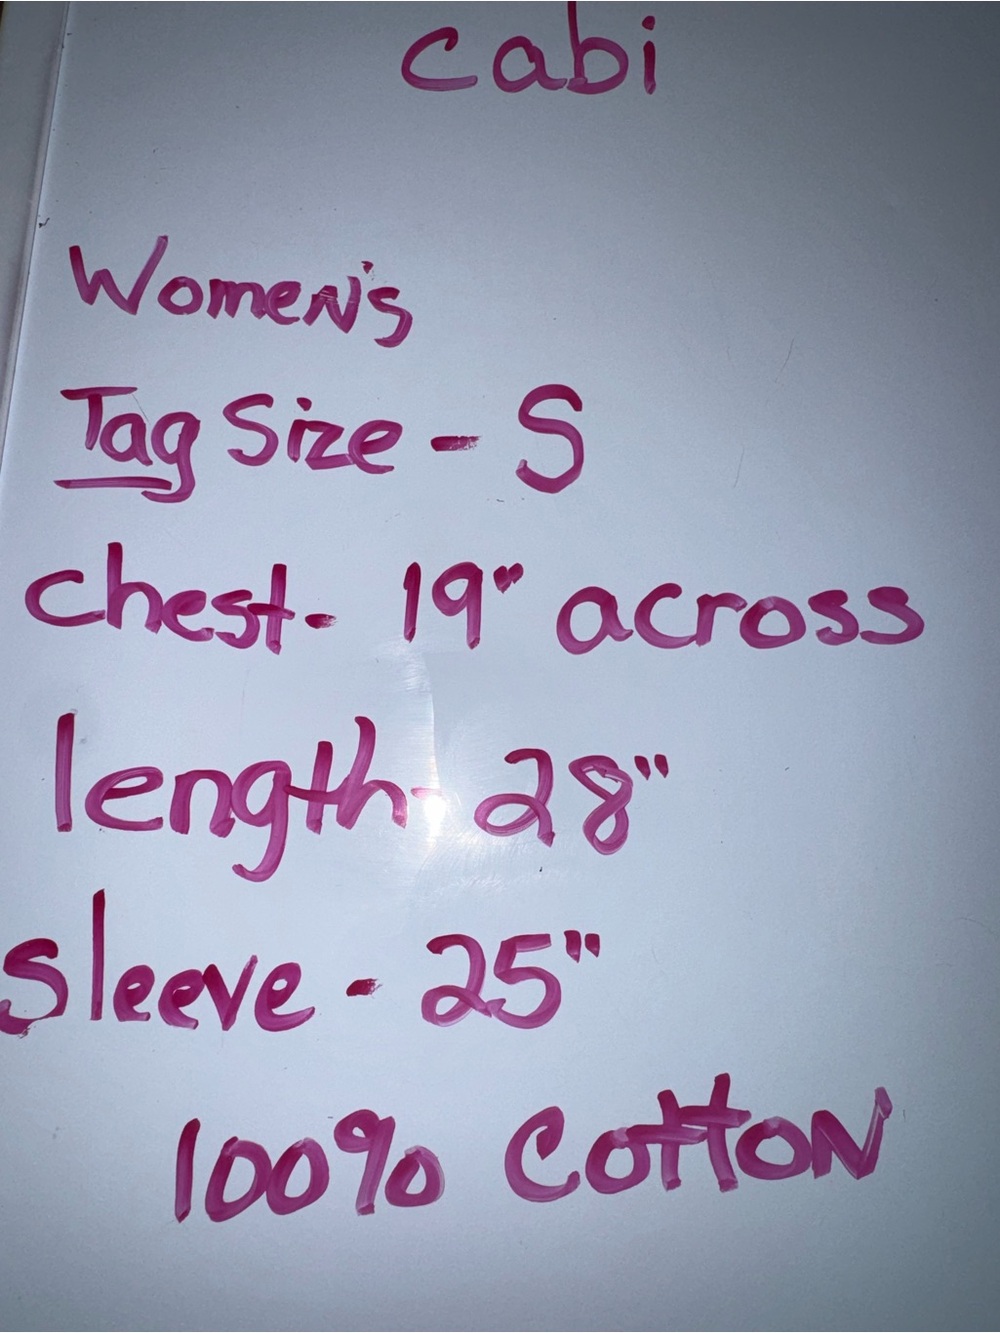 cabi
Women's
Tag Size - S
chest - 19" across
length - 28"
sleeve - 25"
100% Cotton